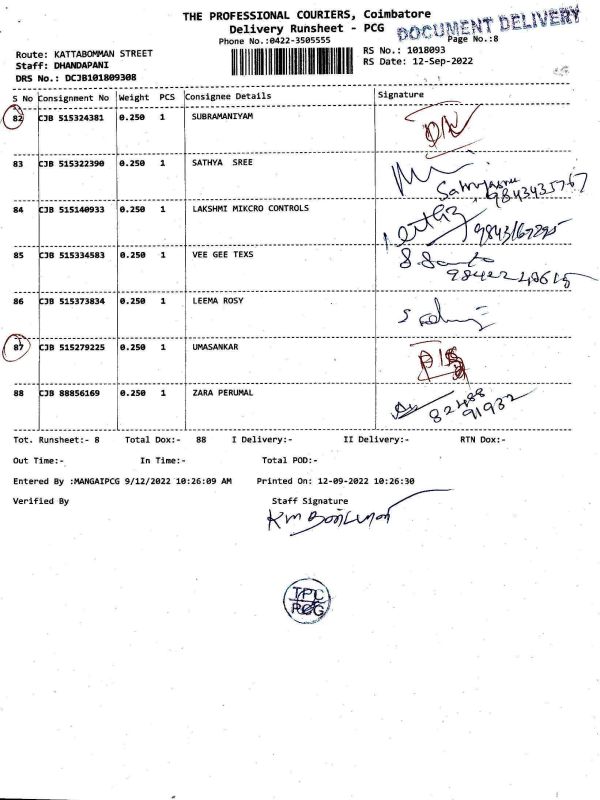 THE PROFESSIONAL COURIERS, Coimbatore
Delivery Runsheet - PCG
DOCUMENT DELIVERY
Phone No.:0422-3505555
Page No.:8
Route: KATTABOMMAN STREET
RS No.: 1018093
Staff: DHANDAPANI
RS Date: 12-Sep-2022
DRS No.: DCJB101809308
S No Consignment No Weight PCS Consignee Details Signature
82 CJB 515324381 0.250 1 SUBRAMANIYAM
83 CJB 515322390 0.250 1 SATHYA SREE
9843435767
84 CJB 515140933 0.250 1 LAKSHMI MIKCRO CONTROLS
9843167295
85 CJB 515334583 0.250 1 VEE GEE TEXS
86 CJB 515373834 0.250 1 LEEMA ROSY
87 CJB 515279225 0.250 1 UMASANKAR
88 CJB 88856169 0.250 1 ZARA PERUMAL
82488
91932
Tot. Runsheet:- 8 Total Dox:- 88 I Delivery:- II Delivery:- RTN Dox:-
Out Time:- In Time:- Total POD:-
Entered By :MANGAIPCG 9/12/2022 10:26:09 AM Printed On: 12-09-2022 10:26:30
Verified By Staff Signature
TPC
PCG